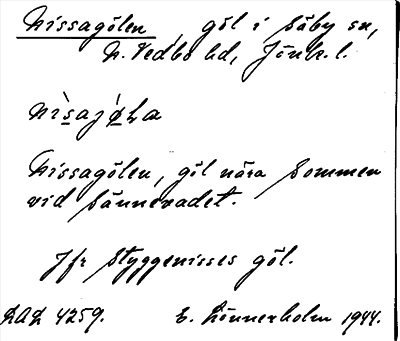 Nissagölen, göl i Säby sn,
N. Vedbo hd, Jönk. l.
nìsajǿLa
Nissagölen, göl nära Sommen
vid Sännevadet.
Jfr Styggenisses göl.
LAL 4259. E. Lönnerholm 1944.